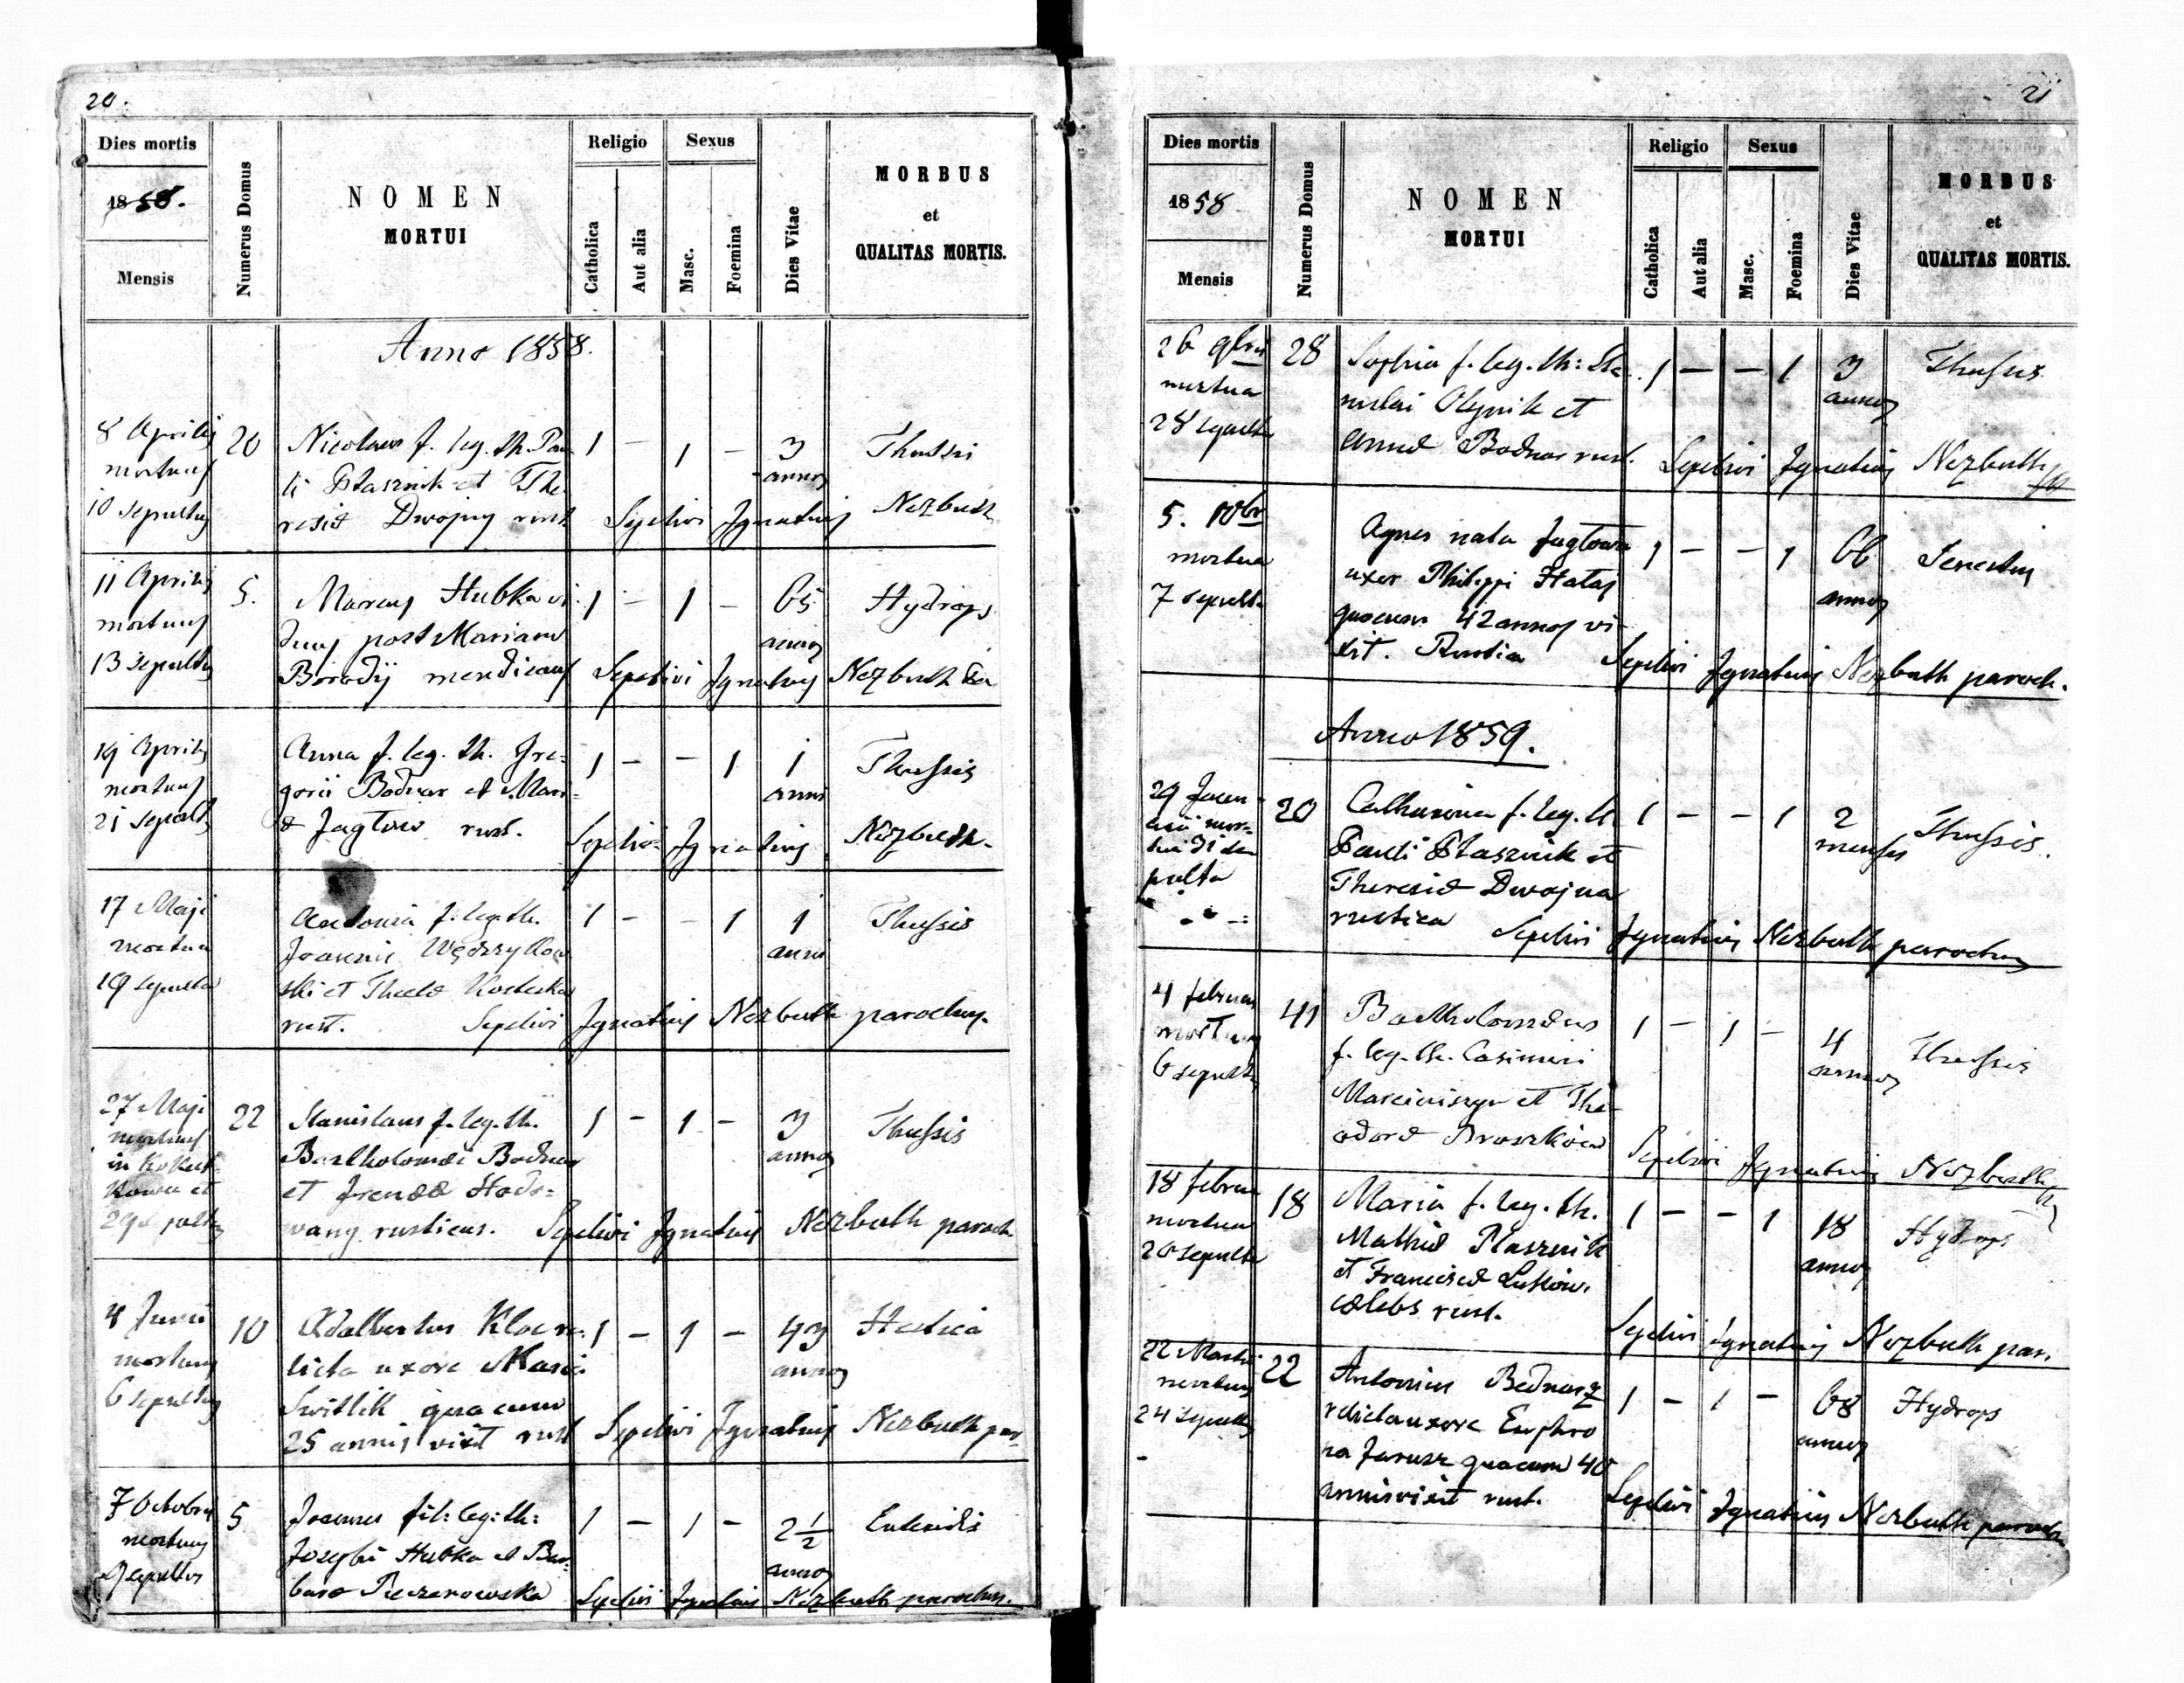 20.
Dies mortis
1858.
Mensis
Numerus Domus
NOMEN
MORTUI
Religio
Catholica
Aut alia
Sexus
Masc.
Foemina
Dies Vitae
MORBUS
et
QUALITAS MORTIS.
Anno 1858.
8 Aprilis 20 Nicolaus f. leg. th. Pau 1 – 1 – 3 Thussis
mortuus li Ptasznik et The annos
10 sepultus resiæ Dwojny rust Sepelivi Ignatius Nezbuth
11 Aprilis 5. Marcus Hubka vi 1 – 1 – 65 Hydrops
mortuus duus post Mariam annos
13 sepultus Borodij mendicans Sepelivi Ignatius Nezbuth
19 Aprilis Anna f. leg. th. Gre- 1 – – 1 1 Thussis
mortuus gorii Bodnar et Mari- anni
21 sepult æ Jagtow rust. Sepelivi Ignatius Nezbuth.
17 Maji Antonia f. leg. th. 1 – – 1 1 Thussis
mortua Joannis anni
19 sepulta ski et rust. Sepelivi Ignatius Nezbuth parochus.
27 Maji 22 Stanislaus f. leg. th. 1 – 1 – 3 Thussis
mortuus Bartholomæi Bodnar annos
in
et Irenææ Hodo=
29 wany rusticus. Sepelivi Ignatius Nezbuth paroch
4 Junii 10 Adalbertus 1 – 1 – 43 Hectica
mortuus licta uxore Maria annos
6 sepultus Switlik quacum
25 annis vixit rust Sepelivi Ignatius Nezbuth par
7 Octobris 5 Joannes fil: leg: th: 1 – 1 – 2 1/2
mortuus Josephi Hubka et Bar- annos
9 sepultus baræ Sepelivi Ignatius Nezbuth parochus.
21
Dies mortis
1858
Mensis
Numerus Domus
NOMEN
MORTUI
Religio
Catholica
Aut alia
Sexus
Masc.
Foemina
Dies Vitae
MORBUS
et
QUALITAS MORTIS.
26 9bris 28 Sophia f. leg. th: Sta 1 – – 1 3 Thussis
mortua nislai Olejnik et annos
28 sepulta Annæ Bodnar rust. Sepelivi Ignatius Nezbuth
5. 10br Agnes nata Jagtow 1 – – 1 66 Senectus
mortua uxor Philippi Hataj annos
7 sepult. quocum 42 annos vi-
xit. Rustica Sepelivi Ignatius Nezbuth paroch.
Anno 1859.
29 Janu- 20 Catharina f. leg. th 1 – – 1 2 Thussis.
arii mor- Pauli Ptasznik et menses
tua 31 se- Theresiæ Dwojna
pulta rustica Sepelivi Ignatius Nezbuth parochus
4 februar 41 Bartholomæus 1 – 1 – 4 Thussis
mortuus f. leg. th. Casimiri annos
6 sepult. Marciniszyn et The-
odoræ Sepelivi Ignatius Nezbuth
18 februa 18 Maria f. leg. th. 1 – – 1 18 Hydrops
mortua Mathiæ Ptasznik annos
20 sepulta et Franciscæ
cælebs rust. Sepelivi Ignatius Nezbuth par.
22 Martii 22 Antonius Bednarz 1 – 1 – 68 Hydrops
mortuus relicta uxore Euphro annos
24 sepultus na Jarusz quacum 40
annis vixit rust. Sepelivi Ignatius Nezbuth parochus